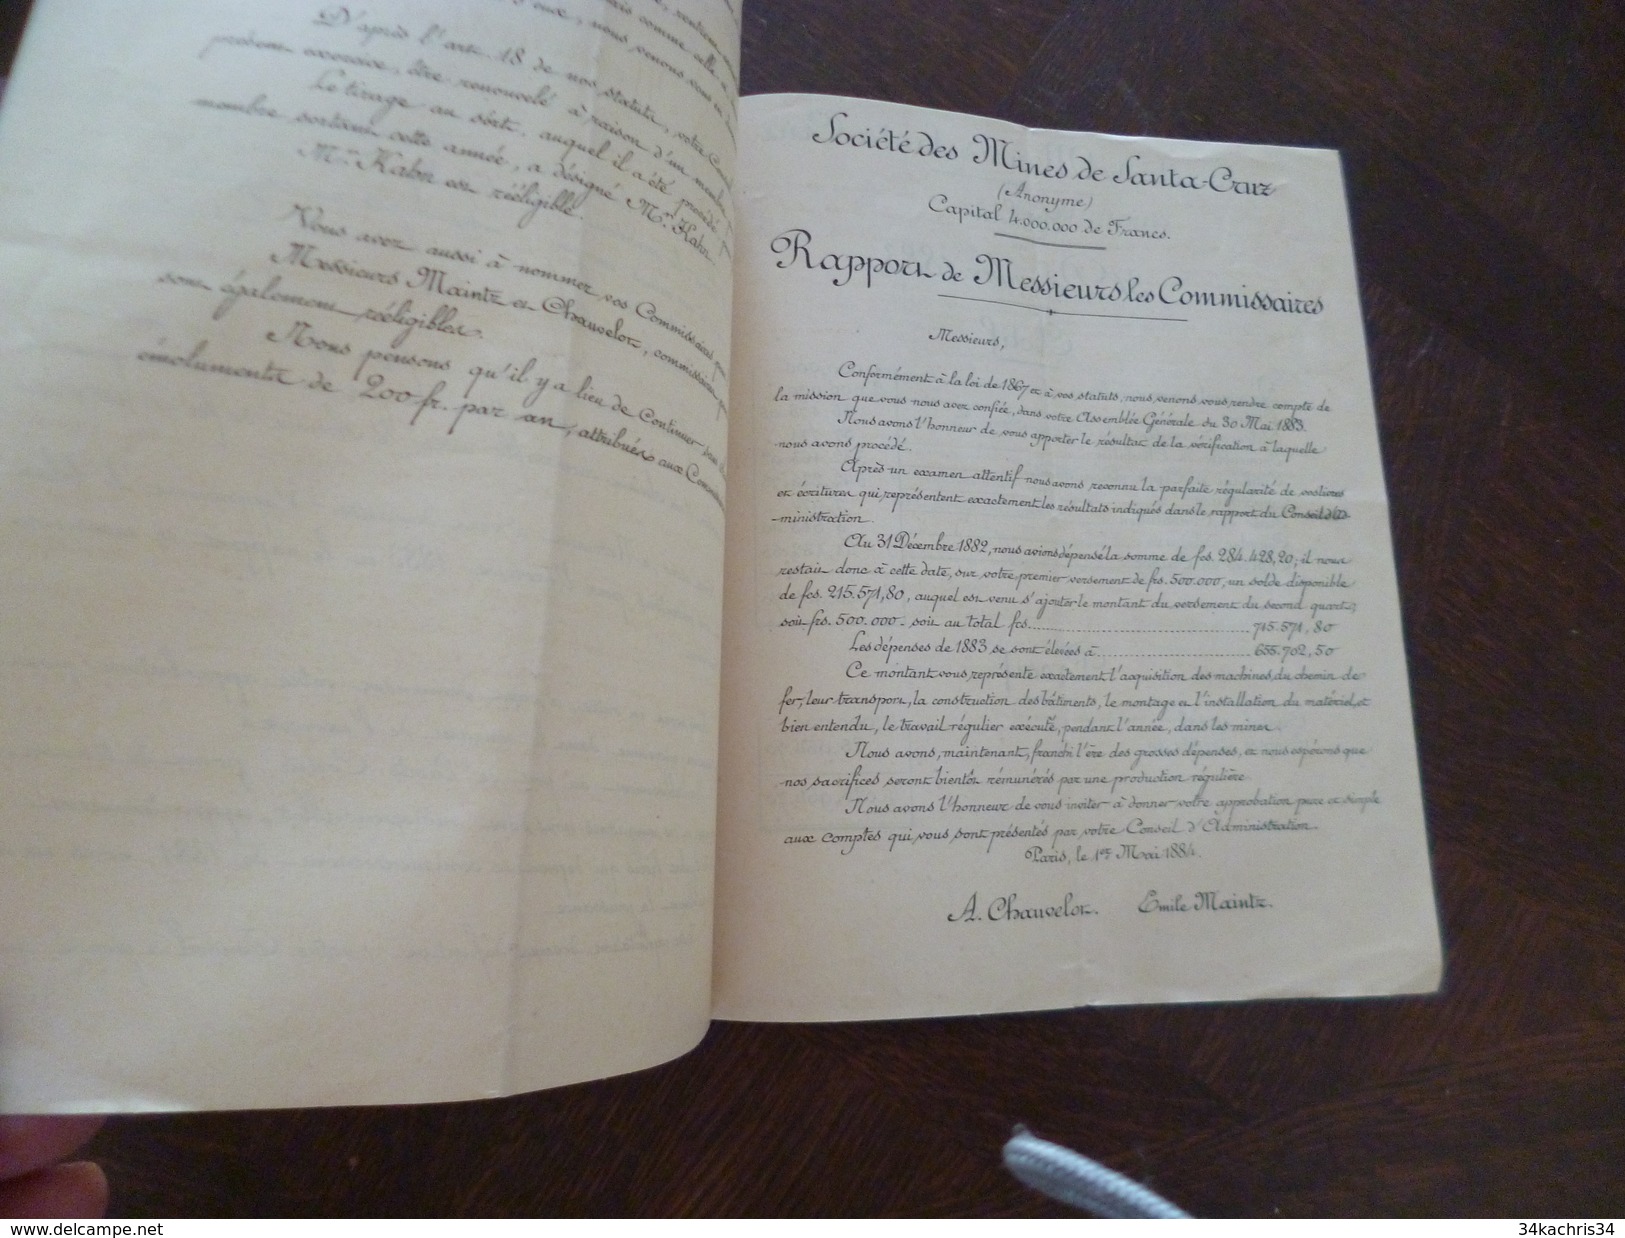 D'après l'art. 18 de nos statuts, votre
présent exercice, être renouvelé à raison d'un membre
Le tirage au sort, auquel il a été procédé
nombre sortant cette année, a désigné Mr. Kahn
Mr. Kahn est rééligible.
Vous avez aussi à nommer vos Commissaires
Messieurs Maintz et Chauvelot, commissaires
sont également rééligibles.
Nous pensons qu'il y a lieu de continuer
émoluments de 200 fr. par an, attribués aux
Société des Mines de Santa-Cruz
(Anonyme)
Capital 4.000.000 de Francs.
Rapport de Messieurs les Commissaires
Messieurs,
Conformément à la loi de 1867 et à vos statuts, nous venons vous rendre compte de
la mission que vous nous avez confiée, dans votre Assemblée Générale du 30 Mai 1883.
Nous avons l'honneur de vous apporter le résultat de la vérification à laquelle
nous avons procédé.
Après un examen attentif nous avons reconnu la parfaite régularité de vos livres
et écritures qui représentent exactement les résultats indiqués dans le rapport du Conseil d'Ad-
-ministration.
Au 31 Décembre 1882, nous avions dépensé la somme de fcs. 284.428,20; il nous
restait donc à cette date, sur votre premier versement de frs. 500.000, un solde disponible
de fcs. 215.571,80, auquel est venu s'ajouter le montant du versement du second quart,
soit frs. 500.000 - soit au total frs. 715.571,80
Les dépenses de 1883 se sont élevées à 655.702,50
Ce montant vous représente exactement l'acquisition des machines, du chemin de
fer, leur transport, la construction des bâtiments, le montage et l'installation du matériel, et
bien entendu, le travail régulier exécuté, pendant l'année, dans les mines.
Nous avons, maintenant, franchi l'ère des grosses dépenses, et nous espérons que
nos sacrifices seront bientôt rémunérés par une production régulière.
Nous avons l'honneur de vous inviter à donner votre approbation pure et simple
aux comptes qui vous sont présentés par votre Conseil d'Administration.
Paris, le 1er Mai 1884.
A. Chauvelot. Emile Maintz.
www.delcampe.net
34kachris34